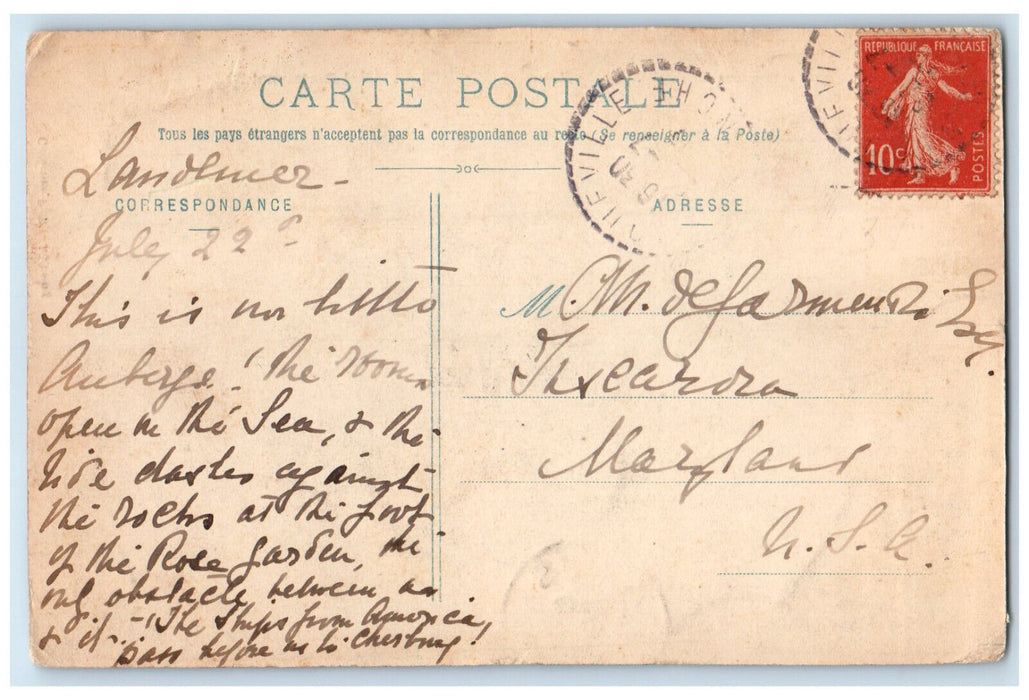 CARTE POSTALE
Tous les pays étrangers n'acceptent pas la correspondance au recto (Se renseigner à la Poste)
RÉPUBLIQUE FRANÇAISE
10c
POSTES
Landemer-
CORRESPONDANCE
July 22d
This is our little
Auberge! the rooms
open on the Sea, & the
tide dashes against
the rocks at the foot
of the Rose garden, the
only obstacle between us
& it. - The Ships from America,
pass before us to Cherbourg!
ADRESSE
M. C.M. de Garmendia Esq.
Tuscarora
Maryland
U.S.A.